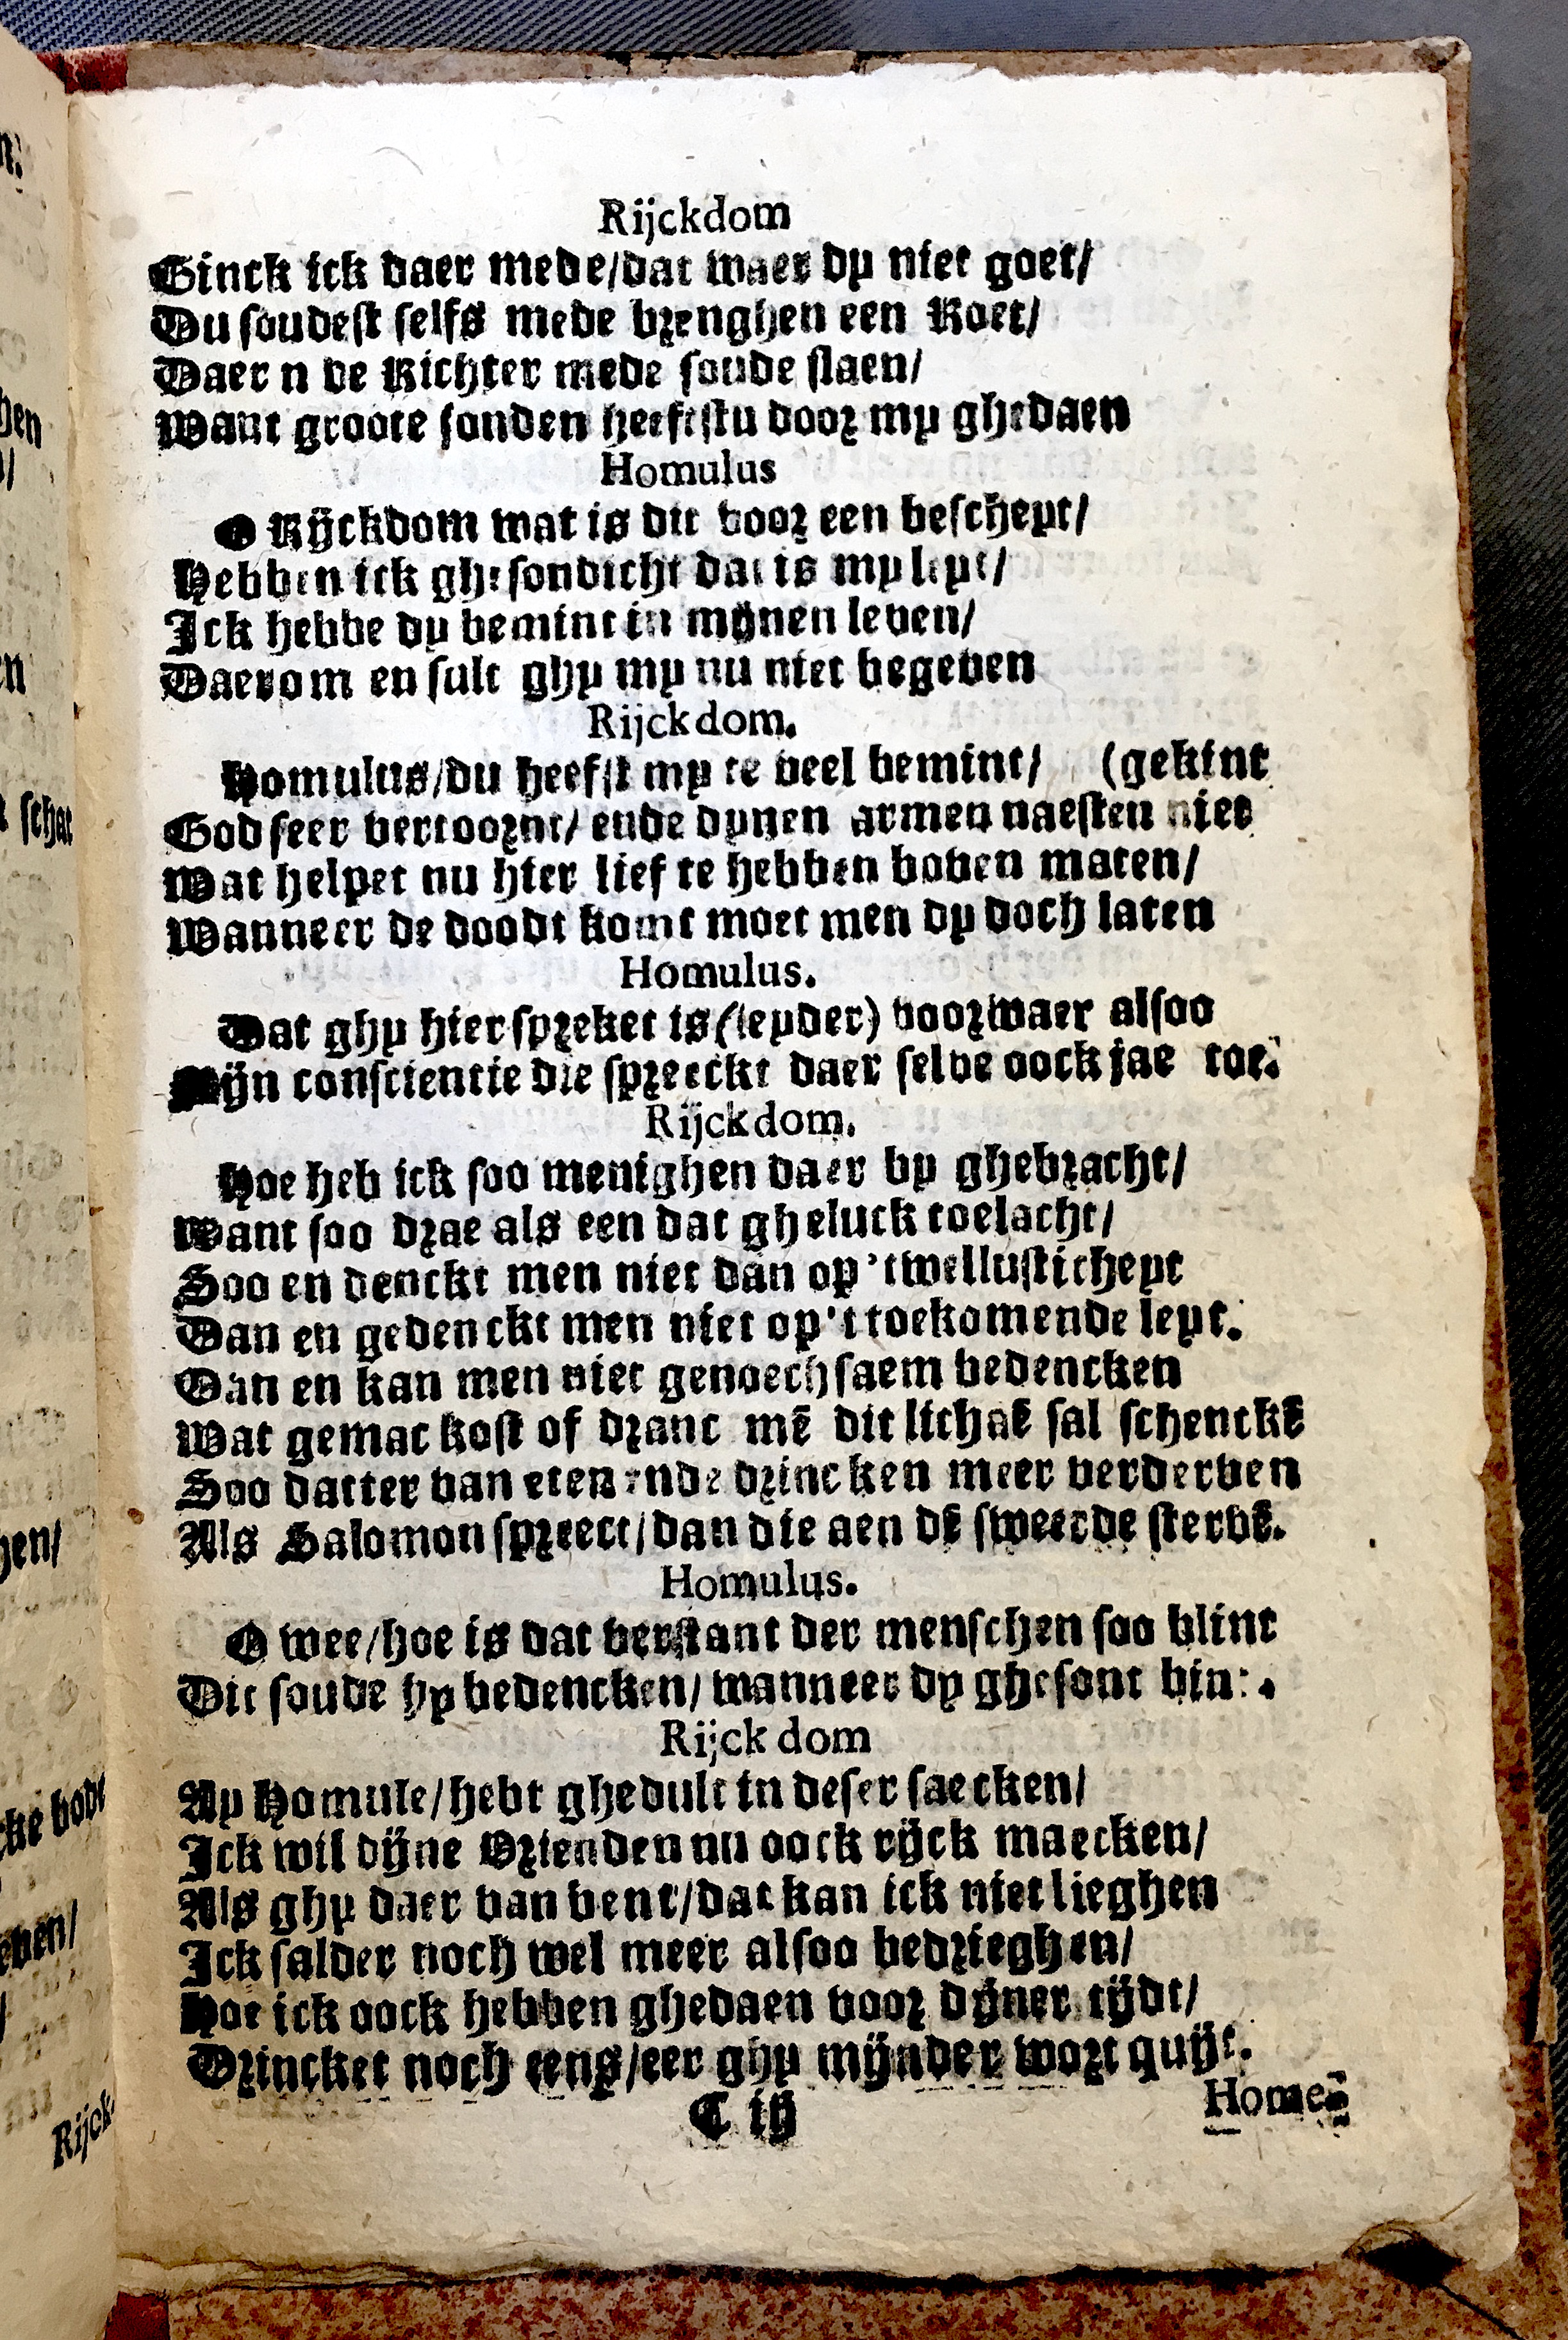 Rijckdom
Ginck ick daer mede/dat waer dy niet goet/
Du soudest selfs mede brenghen een Roet/
Daer n de Richter mede soude slaen/
Want groote sonden heefstu door my ghedaen
Homulus
O Rijckdom wat is dit voor een bescheyt/
Hebben ick ghesondicht dat is my leyt/
Ick hebbe dy bemint in mijnen leven/
Daerom en sult ghy my nu niet begeven
Rijckdom.
Homulus/du heefst my te veel bemint/ (gekint
God seer vertoornt/ ende dynen armen naesten niet
Wat helpet nu hier lief te hebben boven maten/
Wanneer de doodt komt moet men dy doch laten
Homulus.
Dat ghy hier spreket is (leyder) voorwaer alsoo
Mijn conscientie die spreeckt daer selve oock jae toe.
Rijckdom.
Hoe heb ick soo menighen daer by ghebracht/
Want soo drae als een dat gheluck toelacht/
Soo en denckt men niet dan op 't wellusticheyt
Dan en gedenckt men niet op 't toekomende leyt.
Dan en kan men niet genoechsaem bedencken
Wat gemac kost of dranc mē dit lichaē sal schenckē
Soo datter van eten ende drincken meer verderven
Als Salomon spreect/dan die aen dē sweerde stervē.
Homulus.
O wee/hoe is dat verstant der menschen soo blint
Dit soude hy bedencken/ wanneer dy ghesont bint.
Rijckdom
Ay Homule/hebt ghedult in deser saecken/
Ick wil dijne Vrienden nu oock rijck maecken/
Als ghy daer van bent/dat kan ick niet lieghen
Ick salder noch wel meer alsoo bedrieghen/
Hoe ick oock hebben ghedaen voor dijner tijdt/
Drincket noch eens/eer ghy mijnder wort quijt.
C iij